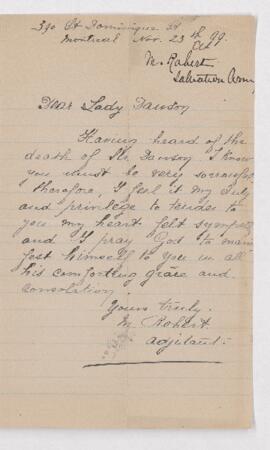 390 St Dominique St
Montreal Nov. 23th 99.
M. Robert
Salvation Army
Lady Dawson
Having heard of the
death of Mr. Dawson I know
you must be very sorrowful
therefore, I feel it my duty
and privilege to tender to
you my heart felt sympathy
and I pray God to mani
fest himself to you in all
his comforting grace and
consolation.
Yours truly.
M. Robert.
Adjutant.